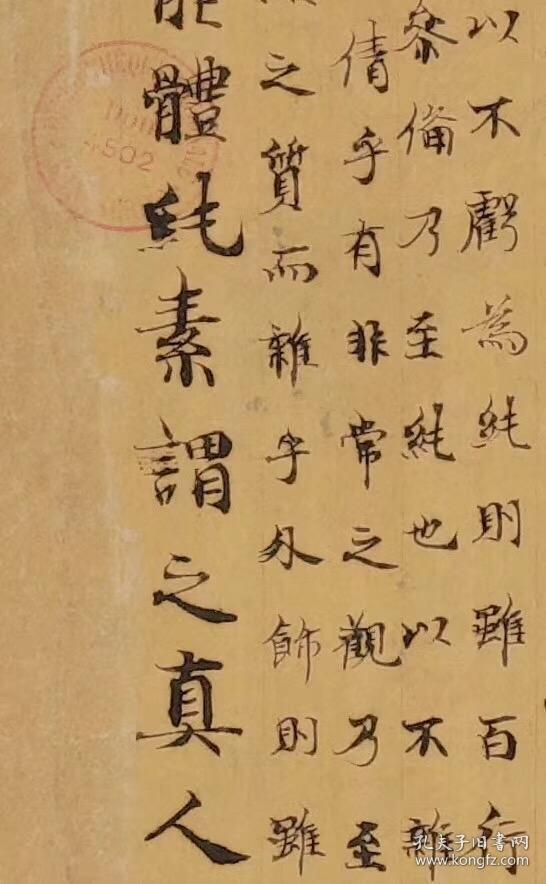 以不虧為純則雖百行
参備乃至純也以不雜
倩乎有非常之觀乃至
之質而雜乎外飾則雖
能體純素謂之真人
502
孔夫子旧书网
www.kongfz.com